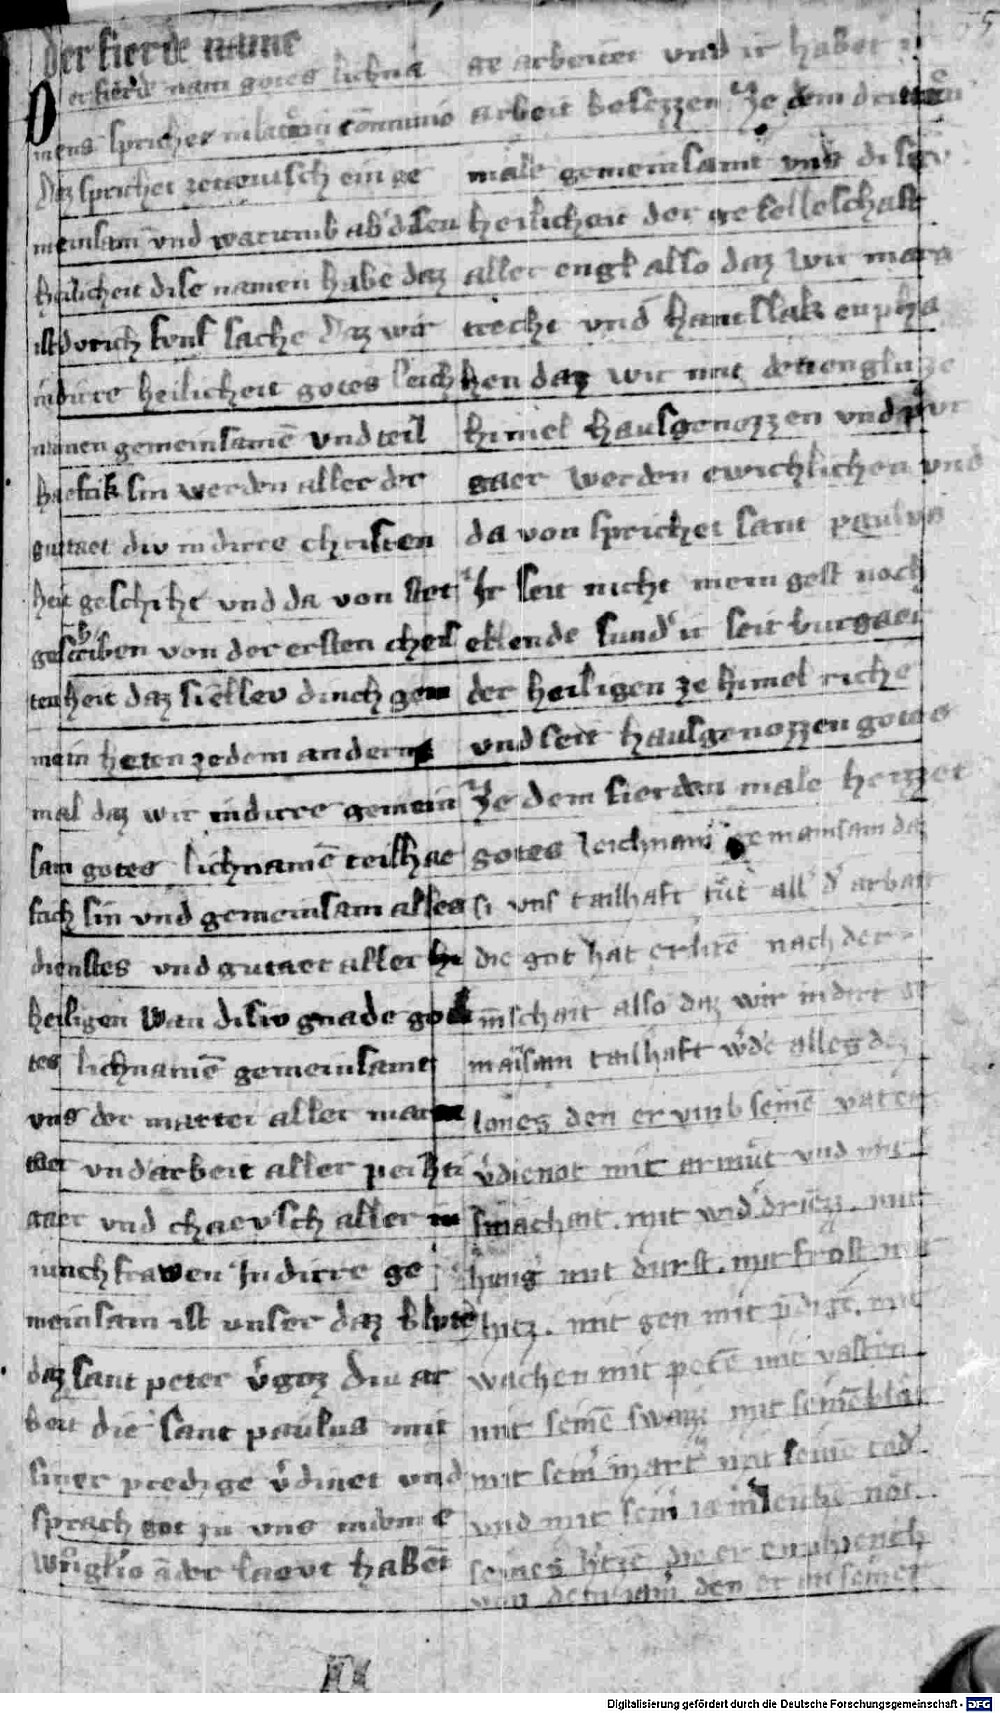 der fierde name
Der fierde nam gotes lichna
mens sprichet in latein comunio
Daz sprichet zetevtsch ein ge
meinsam vnd warumb ab disen
heilicheit dise namen habe daz
ist dvrich fvnf sache Daz wir
in dirre heilicheit gotes leich
namen gemeinsamē vnd teil
haeftik sin werden aller der
guttaet div in dirre christen
heit geschiht vnd da von stet
gescriben von der ersten chris
tenheit daz si ellev dinch gem
mein heten ze dem andern
mal daz wir in dirre gemein
sam gotes lichnamē teilhae
ftich sin vnd gemeinsam alles
dienstes vnd gutaet aller
heiligen Wan disiv gnade got
tes lichnamē gemeinsamt
vns der marter aller mart
raer vnd arbeit aller peihti
gaer vnd chaevsch aller
iunchfrawen In dirre ge
meinsam ist vnser daz blvt
daz sant peter v̄goz Div ar
beit die sant paulus mit
siner predige v̄dinet vnd
sprach got zu vns
ander laevt habēt
ge arbeitet vnd ir habet ir
arbeit besezzen Ze dem dritten
male gemeinsamt vns disev
heilicheit der geselleschaft
aller engel also daz wir
reche vnd hantslak enpha
hen daz wir mit den engln ze
himel hausgenozzen vnd pur
gaer werden ewichlichen vnd
da von sprichet sant paulus
Ir seit nicht mein gest noch
ellende sund' ir seit burgaer
der heiligen ze himel riche
vnd seit hausgenozzen gotes
Ze dem fierden male heizzet
gotes leichnam gemainsam daz
si vns tailhaft tut all' d' arbait
die got hat erlitē nach der
mēschait also daz wir in dirr ge
maīsam tailhaft w'dē alles dez
lones den er vmb seinē vater
v̄dienot mit armut vnd mit
smachait. mit wid'driezz. mit
hung' mit durst. mit frost mit
hitz. mit gen mit p̄digē. mit
wachen mit petē mit vasten
mit seinē swaizz mit seinē blut
mit sein' mart' mit seinē tod.
vnd mit sein' not.
seines h'tzē die er enphiench
von den er an seiner
II
Digitalisierung gefördert durch die Deutsche Forschungsgemeinschaft - DFG